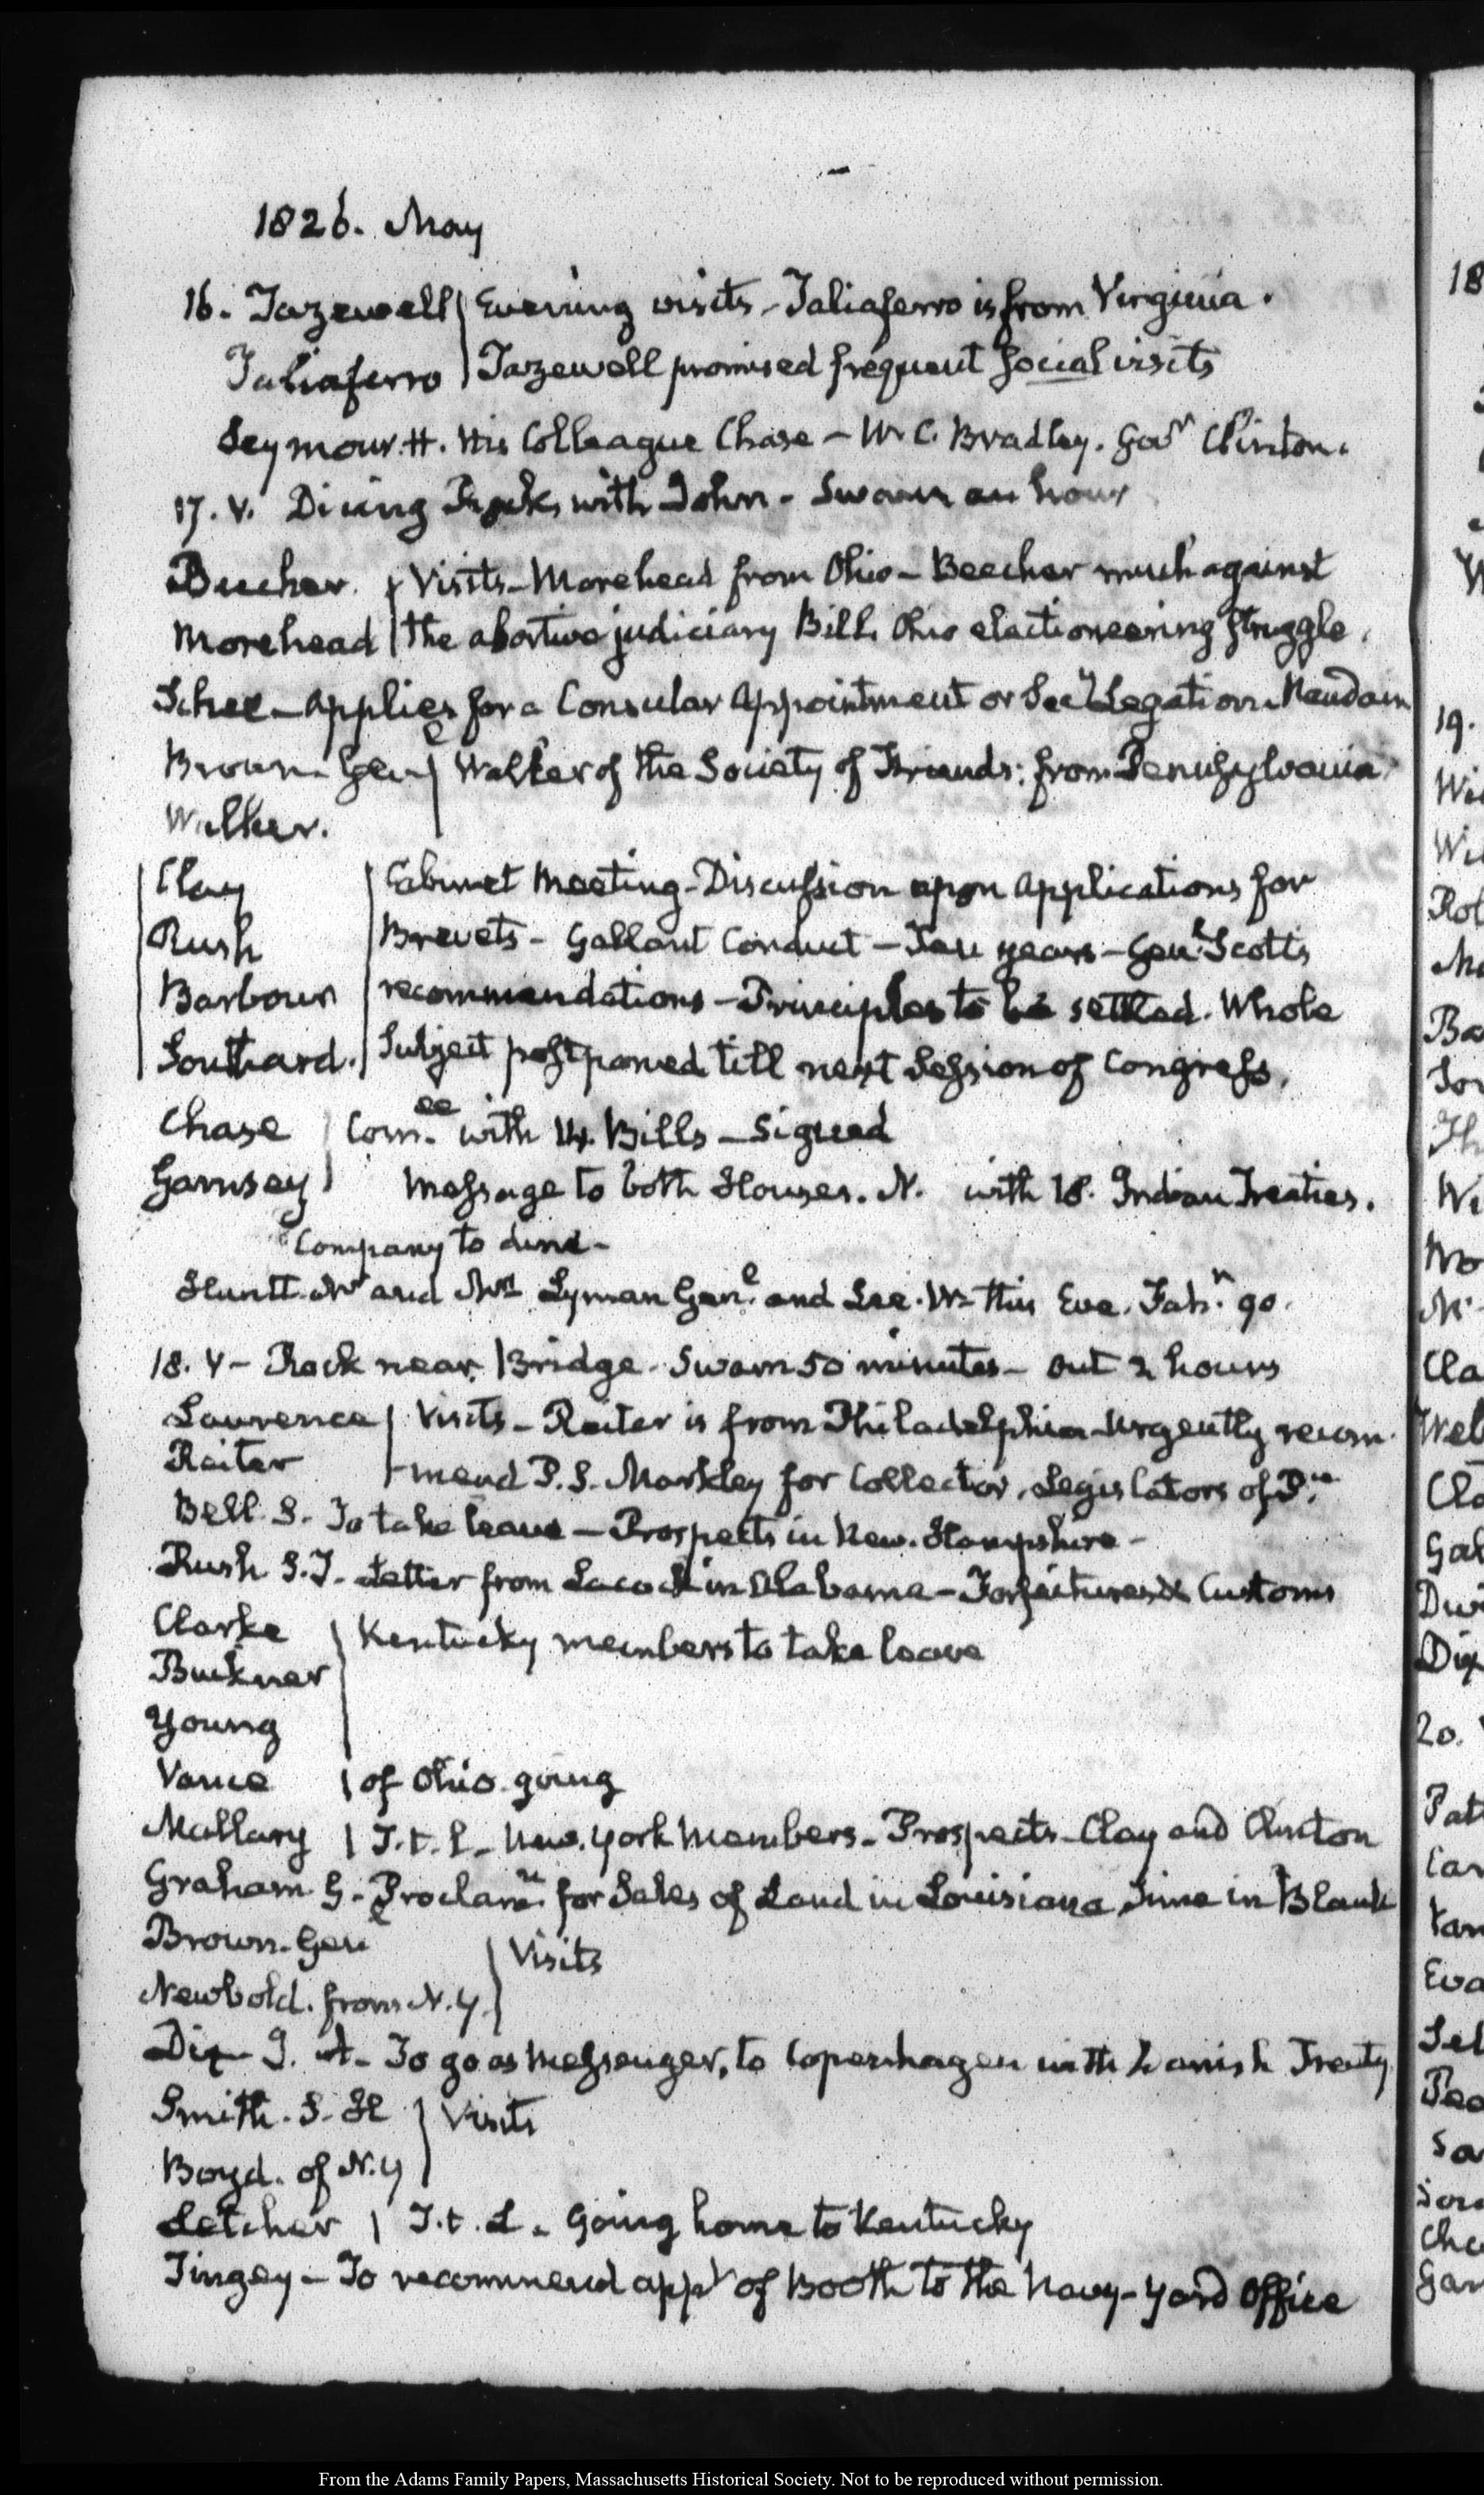 1826. May
16. Tazewell | Evening visits - Taliaferro is from Virginia.
Taliaferro | Tazewell promised frequent social visits
Seymour. H. His Colleague Chase - W. C. Bradley. Govr Clinton.
17. V. Diving Rock, with John - Swam an hour
Beecher. | Visits - Morehead from Ohio - Beecher much against
Morehead | the abortive judiciary Bill. Ohio electioneering struggle.
Schee - applies for a Consular appointment or Secy Legation. Naudain
Brown. Genl | Walker of the Society of Friends: from Pennsylvania
Walker.
Clay | Cabinet Meeting - Discussion upon applications for
Rush | Brevets - Gallant Conduct - Ten years - Genl Scott's
Barbour | recommendations - Principles to be settled. Whole
Southard. | Subject postponed till next Session of Congress.
Chase | Com.ee with 14. Bills - Signed
Garnsey | Message to both Houses. N. with 18. Indian Treaties.
Company to dine -
Huntt. Mr and Mrs Lyman Genl. and See. W this Eve. Fahr. 90.
18. V - Rock near Bridge. Swam 50 minutes - out 2 hours
Lawrence | Visits - Reiter is from Philadelphia - Urgently recom-
Reiter | mend P. S. Markley for Collector. Legislators of Pa
Bell. S. To take leave - Prospects in New-Hampshire -
Rush. Letter from Lacock in Alabama - Forfeitures & Customs
Clarke | Kentucky members to take leave
Buckner
Young
Vance | of Ohio. going
Mallary | T. t. l. New-York Members - Prospects - Clay and Clinton
Graham G. Proclamn. for Sales of Land in Louisiana Time in Blank
Brown. Genl | Visits
Newbold. from N. Y.
Dix J. A. To go as Messenger, to Copenhagen with Danish Treaty
Smith. S. H | Visits
Boyd. of N. Y
Letcher | T. t. L. Going home to Kentucky
Tingey - To recommend appt of Booth to the Navy-yard Office
18
19.
Wi
Wi
Rol
Ba
Th
Wi
Cla
Wel
Gal
Dix
20.
Pat
Eva
From the Adams Family Papers, Massachusetts Historical Society. Not to be reproduced without permission.